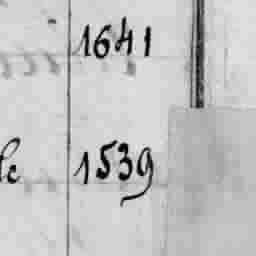 1641
le 1539